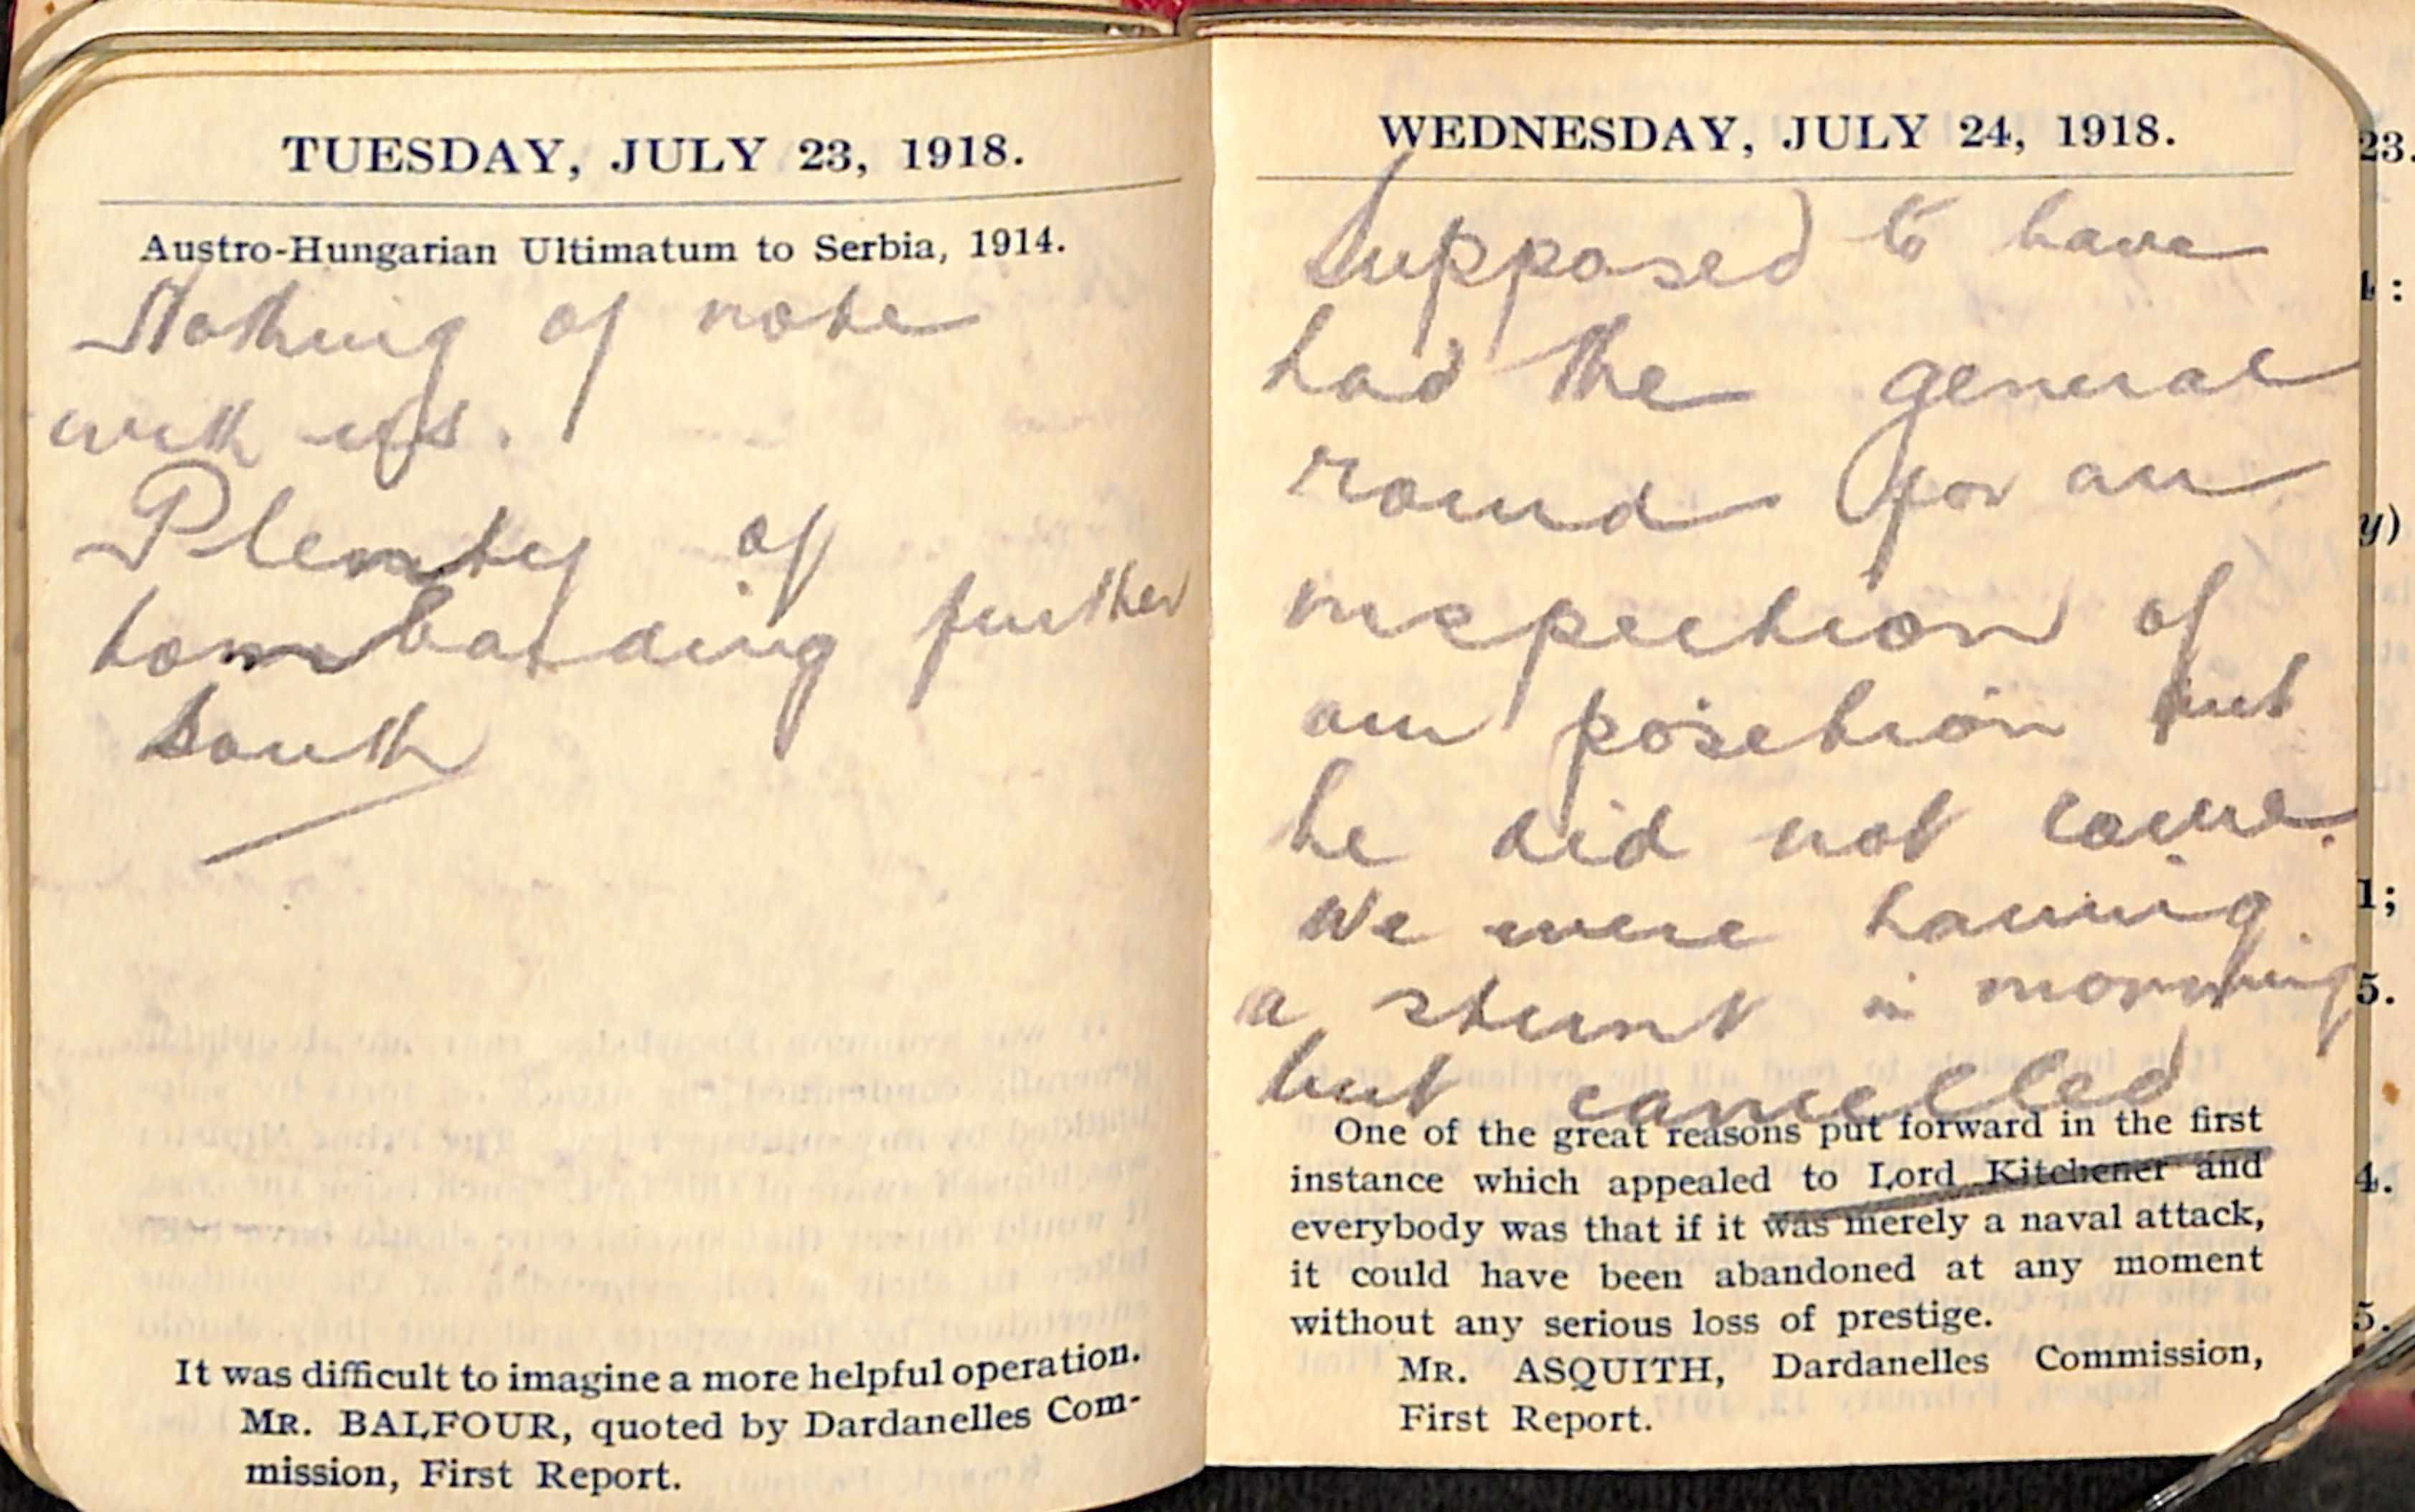 TUESDAY, JULY 23, 1918.
Austro-Hungarian Ultimatum to Serbia, 1914.
Nothing of note
with us.
Plenty of
bombarding further
South
It was difficult to imagine a more helpful operation.
MR. BALFOUR, quoted by Dardanelles Com-
mission, First Report.
WEDNESDAY, JULY 24, 1918.
Supposed to have
had the general
round for an
inspection of
our position but
he did not come.
We were having
a stunt in morning
but cancelled
One of the great reasons put forward in the first
instance which appealed to Lord Kitchener and
everybody was that if it was merely a naval attack,
it could have been abandoned at any moment
without any serious loss of prestige.
MR. ASQUITH, Dardanelles Commission,
First Report.
23.
y)
1;
5.
4.
5.